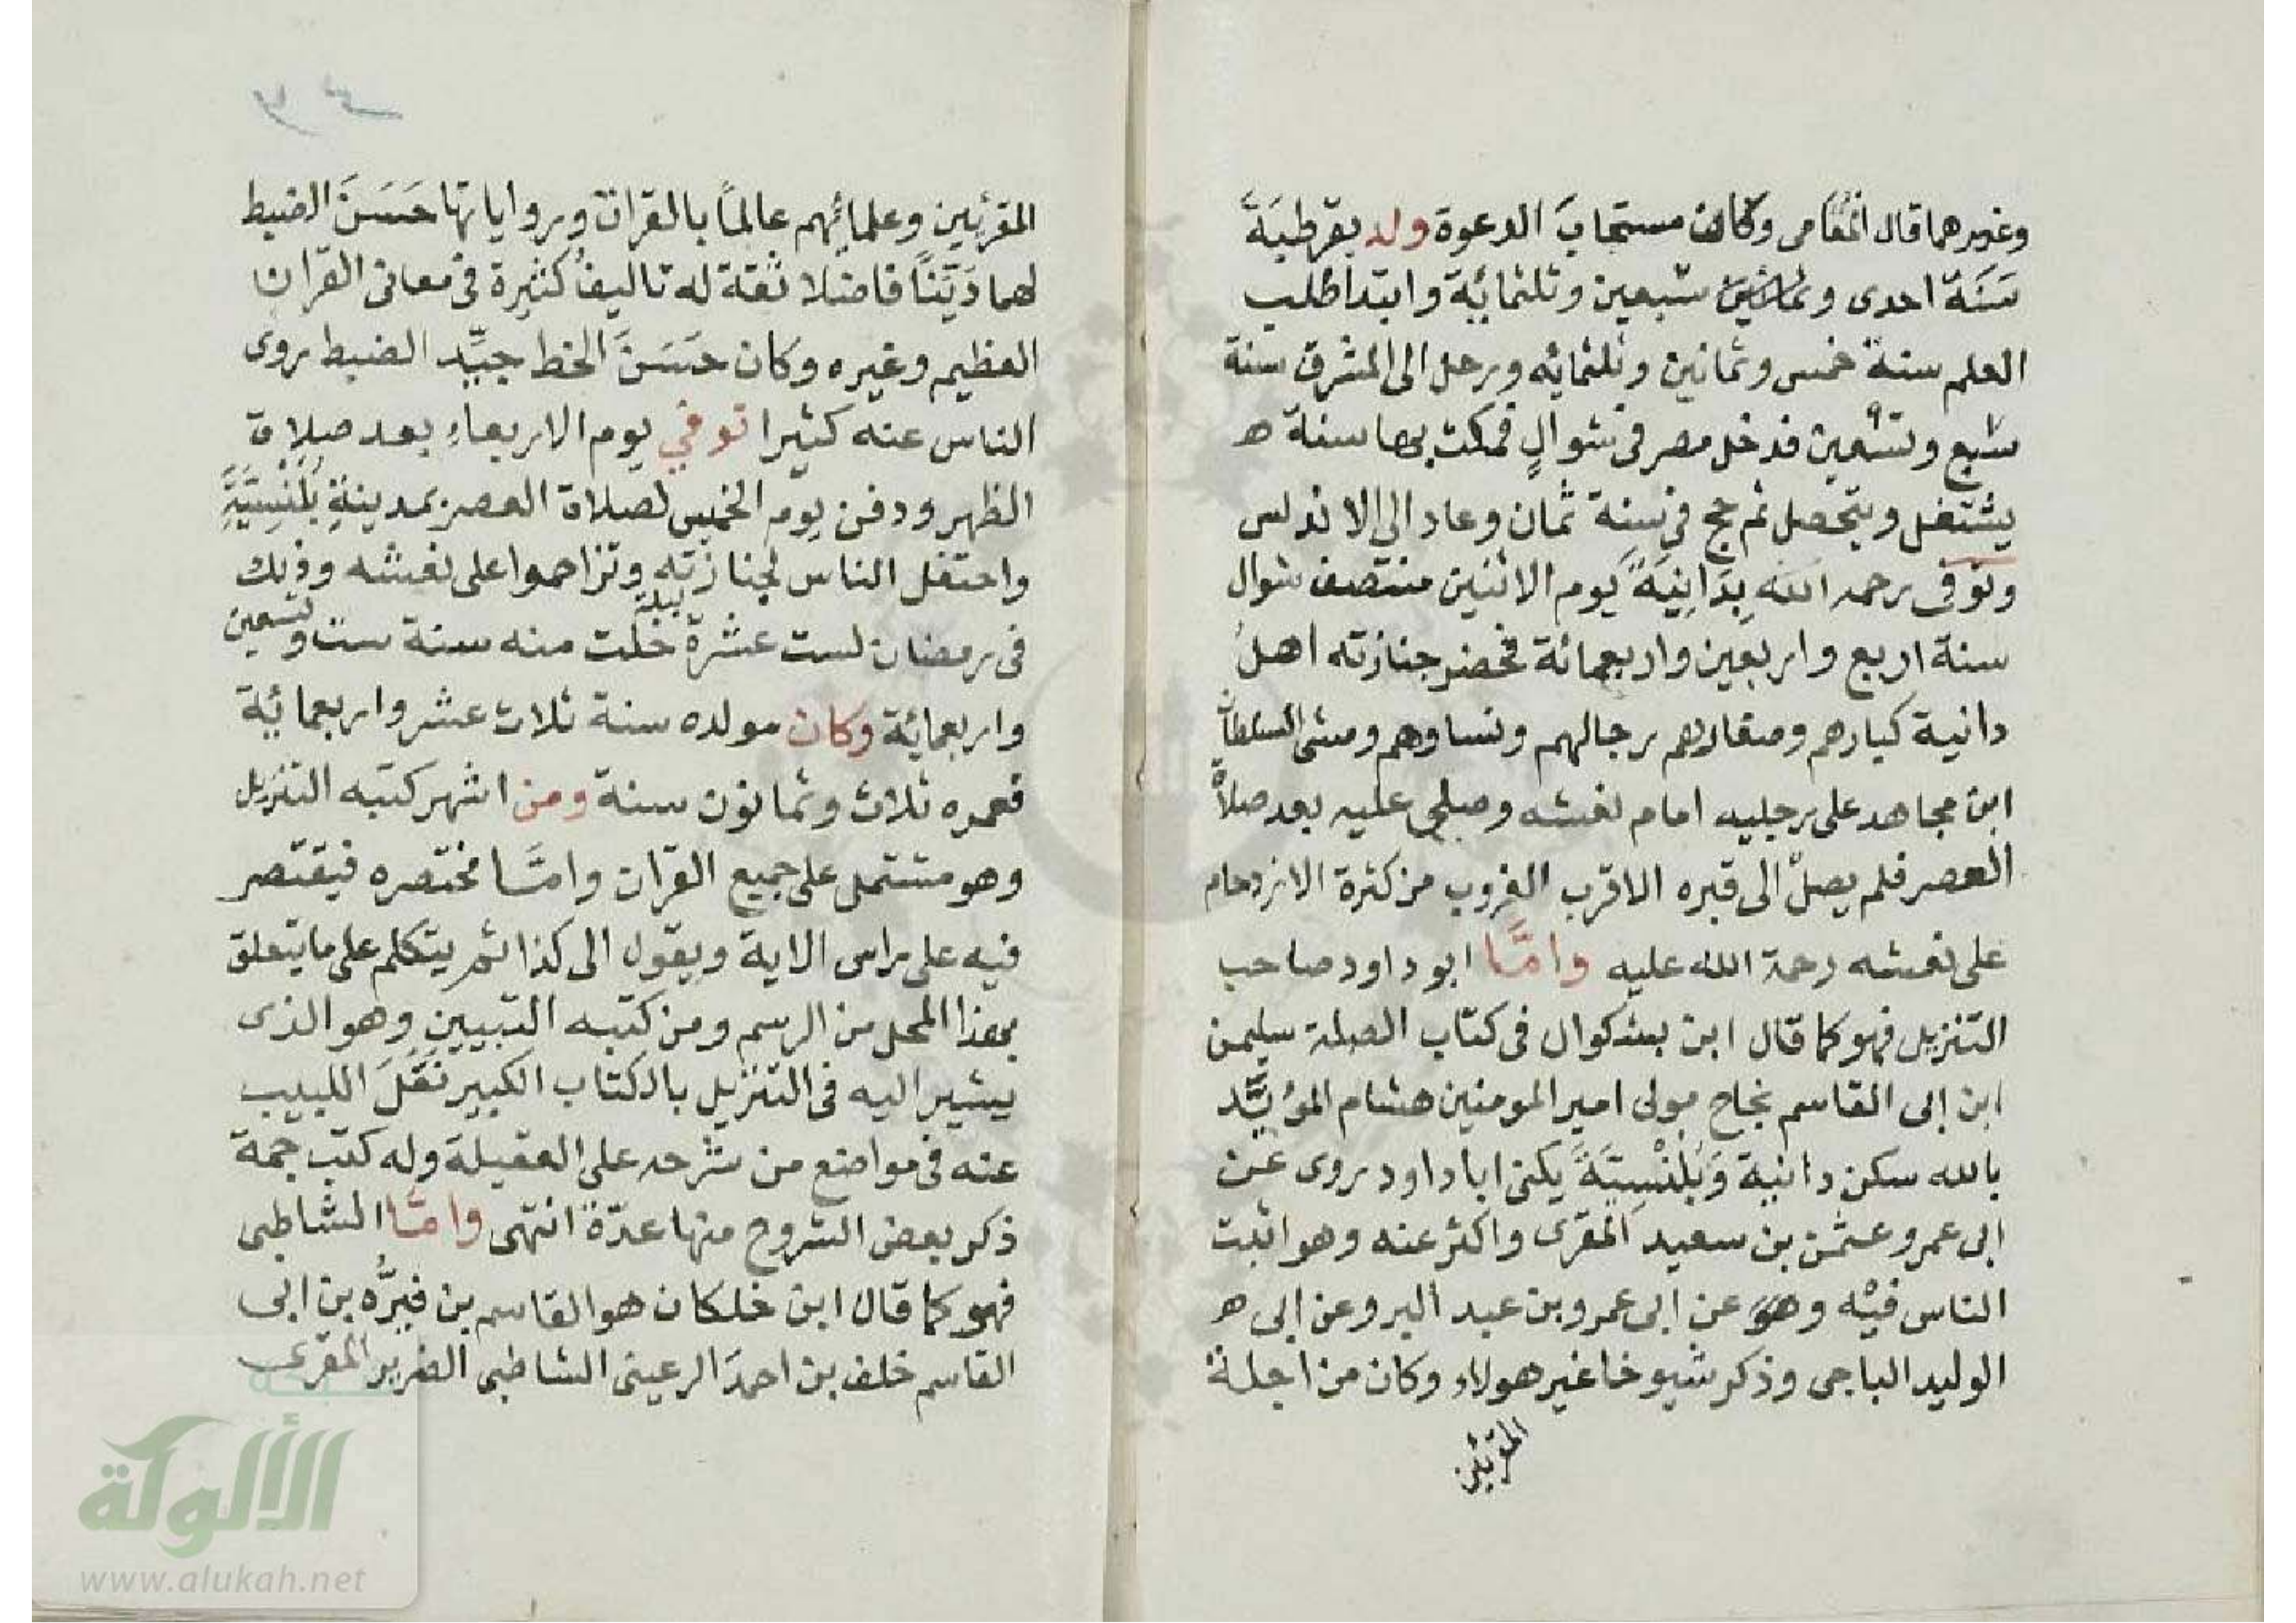 وغيرهما قال المغامى وكان مستجابَ الدعوة ولد بقرطبَةَ
سَنَة احدى وسَبعين وثلثمائة وابتدا طلب
العلم سنة خمس وثمانين وثلثمائه ورحل الى المشرق سنة
سَبع وتسعين فدخل مصر فى شوالٍ فمكث بها سنة ه
يشتغل ويتحصل ثم حج فى سنة ثمان وعاد الي الاندلس
وتوفى رحمه الله بِدَانِيَةً يوم الاثنين منتصف شوال
سنة اربع واربعين واربعمائة فحضر جنازته اهل
دانية كبارهم وصغارهم رجالهم ونساوهم ومشى السلطان
ابن مجاهد على رجليه امام نعشه وصلى عليه بعد صلاة
العصر فلم يصل الى قبره الا قرب الغروب من كثرة الازدحام
على نعشه رحمة الله عليه وامَّا ابو داود صاحب
التنزيل فهو كما قال ابن بشكوال فى كتاب الصلة سليمن
ابن ابى القاسم نجاح مولى امير المومنين هشام المؤيَّد
بالله سكن دانية وَبَلَنْسِيَّةَ يكنى ابا داود روى عَن
ابى عمرو عثمن بن سعيد المقرى واكثر عنه وهو اثبت
الناس فيْه وهوَ عن ابى عمرو بن عبد البر وعن ابى ه
الوليد الباجى وذكر شيوخا غير هولاء وكان من اجلة
المقرئين
المقرئين وعلمائهم عالمًا بالقران ورواياتها حَسَنَ الضبط
لهما دَيِّنًا فاضلا ثقة له تاليفُ كثيرة فى معانى القران
العظيم وغيره وكان حَسَنَ الخط جيِّد الضبط روى
الناس عنه كثيرا توفي يوم الاربعاءِ بعد صلاة
الظهر ودفن يوم الخميس لصلاة العصر بمدينةِ بَلَنْسِيَّةَ
واحتفل الناس لجنازته وتزاحموا على نعشه وذلك
فى رمضان لست عشرة ليلة خلت منه سنة ست وتسعين
واربعمائة وكان مولده سنة ثلاث عشر واربعمائة
فعمره ثلاث وثمانون سنة ومن اشهر كتبه التنزيل
وهو مشتمل على جميع القران وامَّا مختصره فيقتصر
فيه على راس الاية ويقول الى كذا ثم يتكلم على ما يتعلق
بهذا المحل من الرسم ومن كتبه التبيين وهو الذى
يشير اليه فى التنزيل بالكتاب الكبير نَقَلَ اللبيب
عنه فى مواضع من شرحه على العقيلة وله كتب جمة
ذكر بعض الشروح منها عدّة انتهى وامَّا الشاطبى
فهو كما قال ابن خلكان هو القاسم بن فيرُّه بن ابى
القاسم خلف بن احمدَ الرعينى الشاطبى الضرير المقرى
شبكة
الألوكة
www.alukah.net